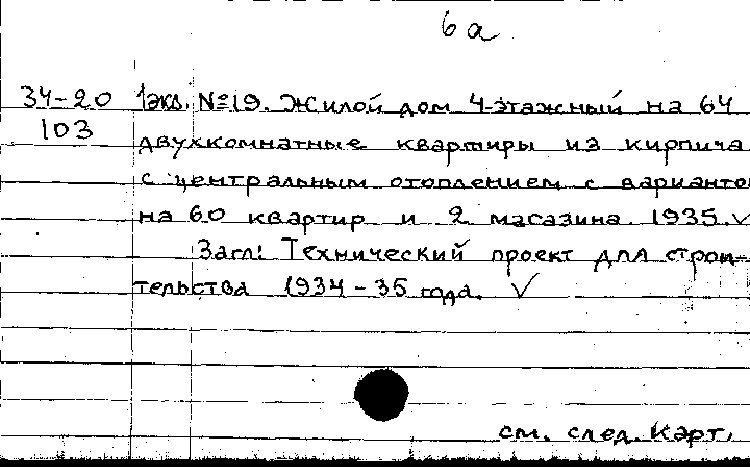 6а.
34-20 1экз. №19. Жилой дом 4-этажный на 64
103 двухкомнатные квартиры из кирпича
с центральным отоплением с варианто
на 60 квартир и 2 магазина. 1935. ✓
Загл: Технический проект для строи-
тельства 1934-35 года. ✓
см. след. карт.